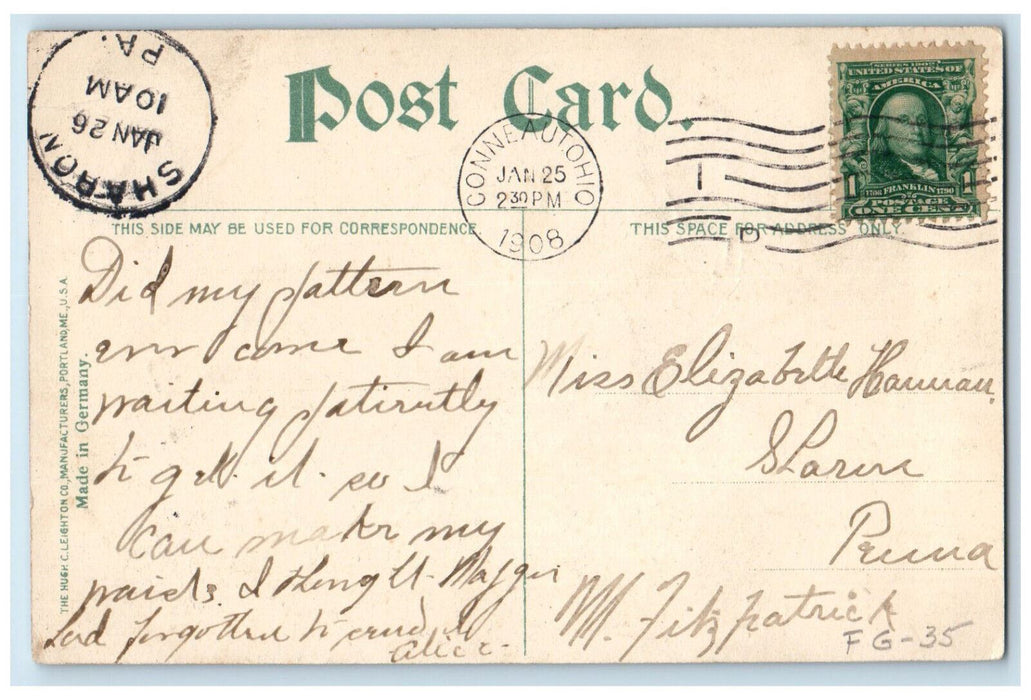 SHARON
JAN 26
10 AM
PA.
Post Card.
CONNEAUT OHIO
JAN 25
2 30 PM
1908
SERIES 1902
UNITED STATES OF
AMERICA
1 1706 FRANKLIN 1790 1
POSTAGE
ONE CENT
THIS SIDE MAY BE USED FOR CORRESPONDENCE.
THIS SPACE FOR ADDRESS ONLY.
THE HUGH C. LEIGHTON CO., MANUFACTURERS, PORTLAND, ME., U.S.A.
Made in Germany.
Did my pattern
ever come I am
waiting patiently
to get it so I
can make my
I thought
had forgotten to send it
Alice-
Miss Elizabeth Hannan,
Sharon
Penna
M. Fitzpatrick
FG-35